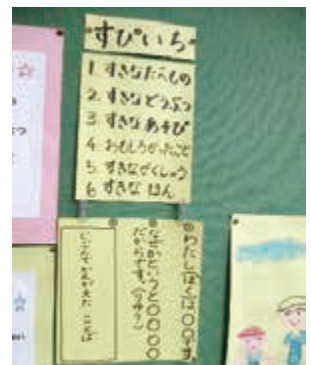 すぴいち
1 すきなたべもの
2. すきなどうぶつ
3 すきなあそび
4 おもしろかったこと
5. すきながくしゅう
6 すきな ほん
わたし(ぼく)は〇〇です。
なぜかというと〇〇〇〇
だからです。(りゆう)
じぶんでかんがえた ことば